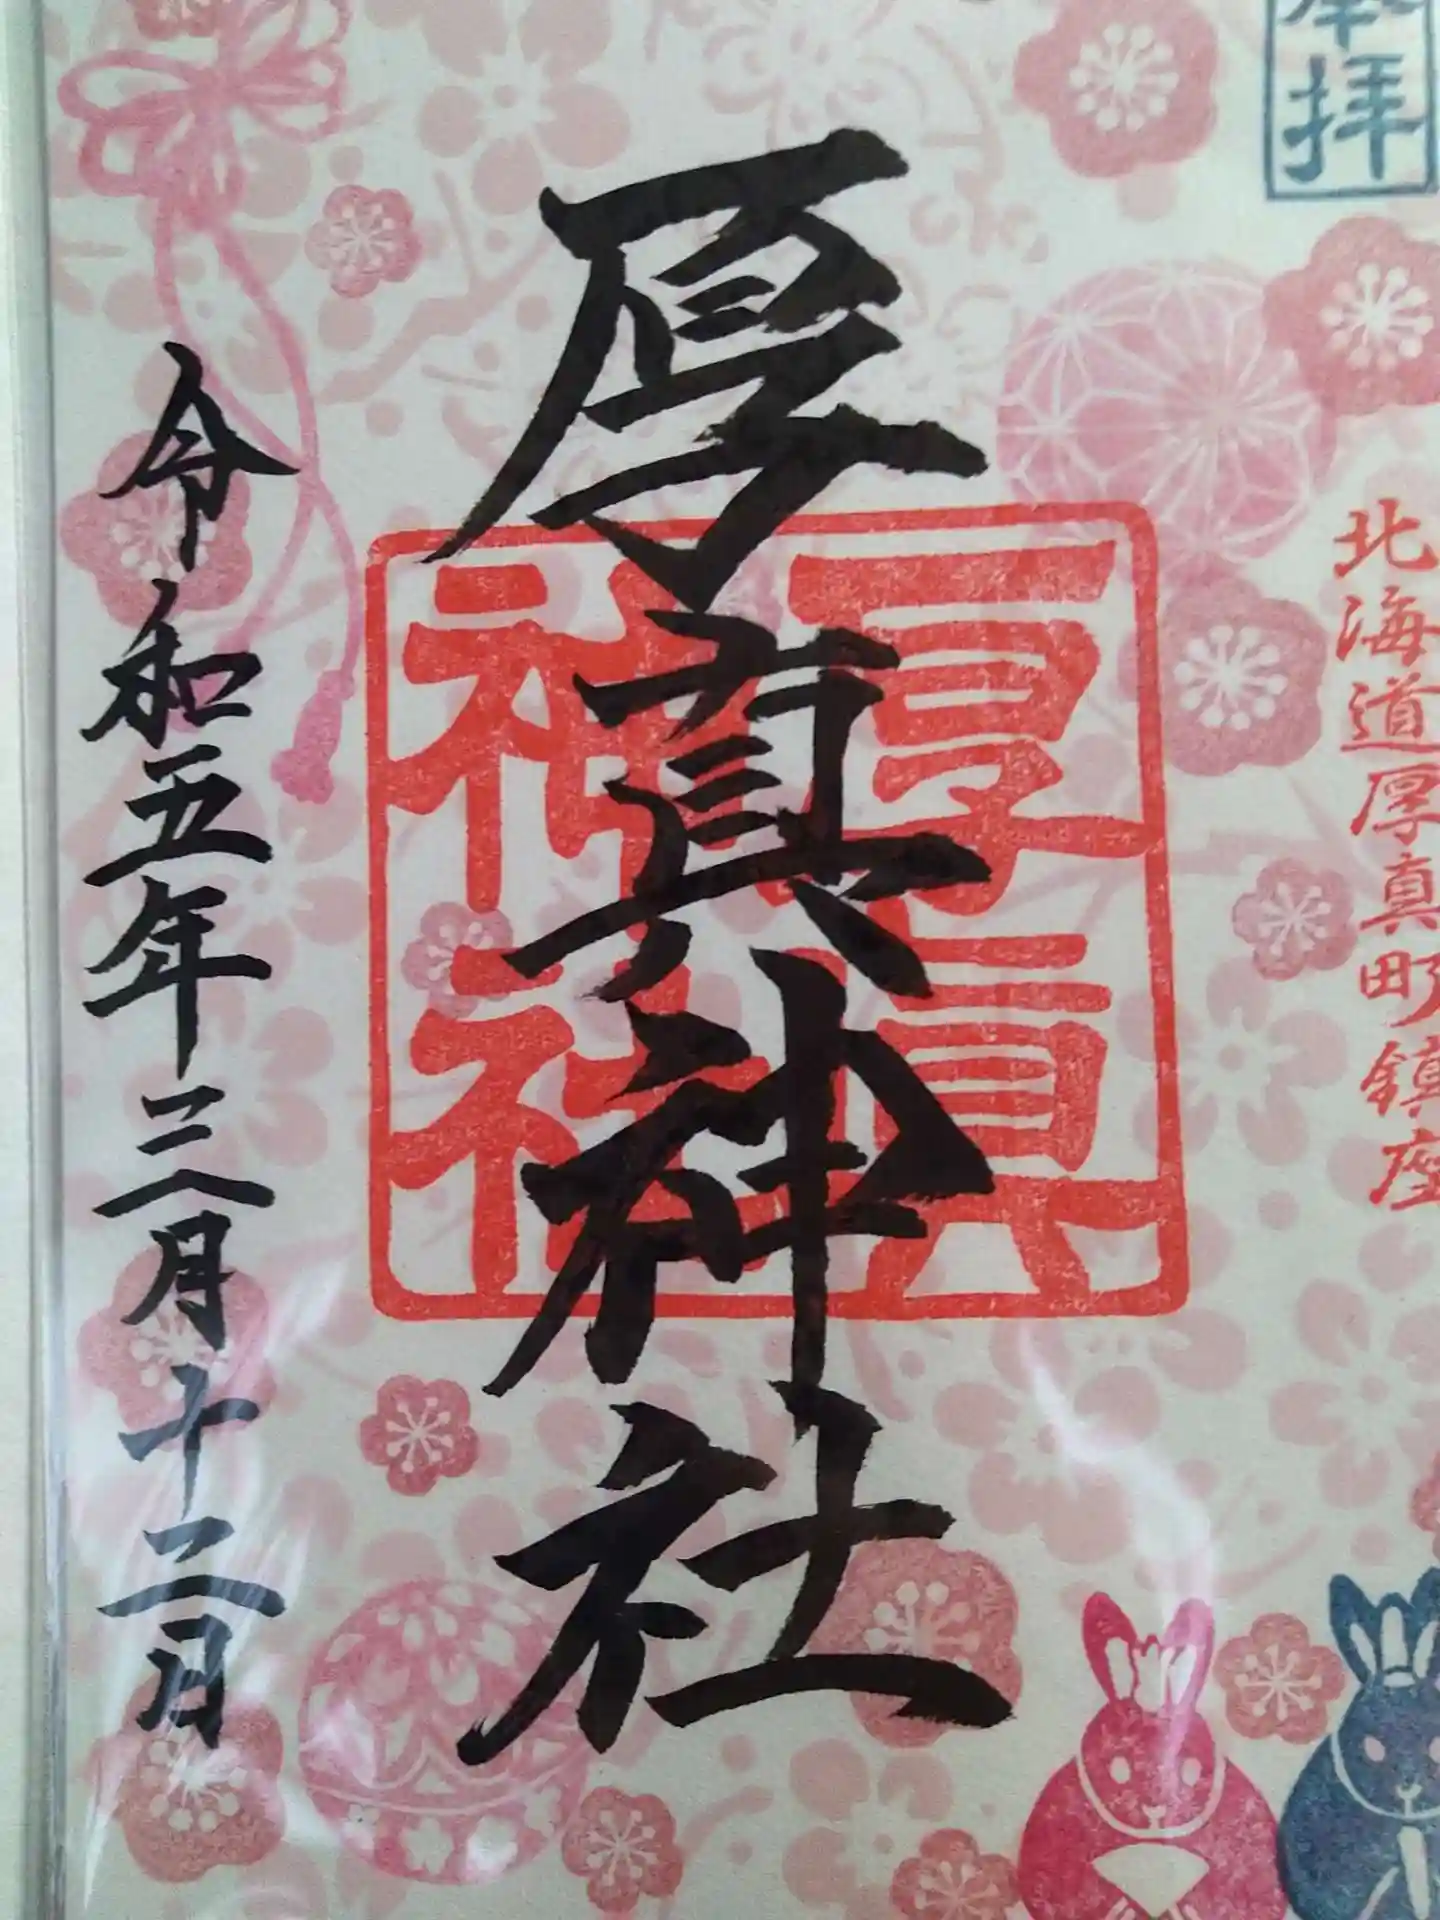 奉拝
北海道厚真町鎮座
厚真神社
厚眞
神社
令和五年三月十二日